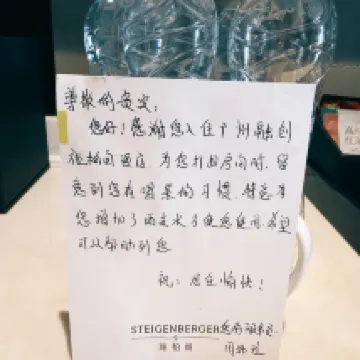 尊敬的贵宾：
您好！感谢您入住广州融创
施柏阁酒店，为您打扫房间时，留
意到您有喝茶的习惯，特意为
您增加了两支水方便您使用，希望
可以帮助到您
祝：居住愉快！
STEIGENBERGER
施柏阁